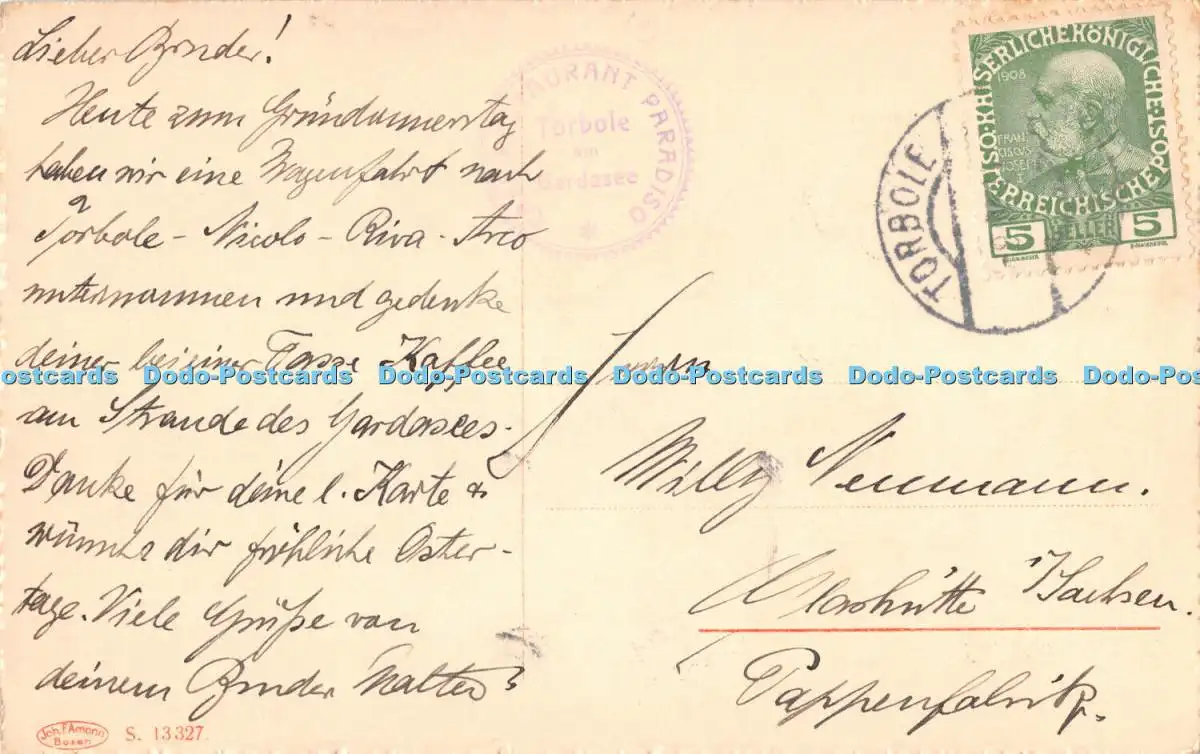 Lieber Bruder!
Heute zum Gründonnerstag
haben wir eine Wagenfahrt nach
Torbole - Nicolo - Riva - Arco
unternommen und gedenke
deiner bei einer Tasse Kaffee
am Strande des Gardasees.
Danke für deine l. Karte &
wünsche dir fröhliche Oster-
tage. Viele Grüße von
deinem Bruder Walter
Joh. F. Amonn
Bozen
S. 13327
RESTAURANT PARADISO
Torbole
am
Gardasee
KAISERLICHE KÖNIGLICHE
ÖSTERREICHISCHE POST
1908
FRANZ
JOSEF I
5 HELLER 5
TORBOLE
Herrn
Willy Neumann.
Glashütte i/Sachsen.
Pappenfabrik.
Dodo-Postcards Dodo-Postcards Dodo-Postcards Dodo-Postcards Dodo-Postcards Dodo-Postcards